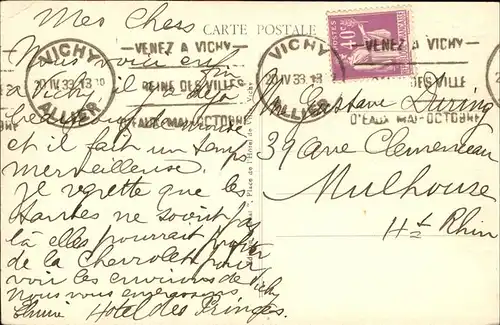 Mes Chers
CARTE POSTALE
POSTES
40c
VICHY
20 IV 39.13
ALLIER
VENEZ A VICHY
REINE DES VILLES
D'EAUX MAI-OCTOBRE
VICHY
20 IV 39.13
ALLIER
VENEZ A VICHY
DES VILLE
D'EAUX MAI-OCTOBRE
Nous voici en
Vichy il
et il fait un temps
merveilleuse.
Je regrette que les
tantes ne soient pas
là elles pourrait
de la Chevrolet pour
voir les environs de Vichy
Nous vous embrassons
Hotel des Princes.
Gustave During
39 Ave Clemenceau
Mulhouse
Ht Rhin
Place de l'Hôtel de